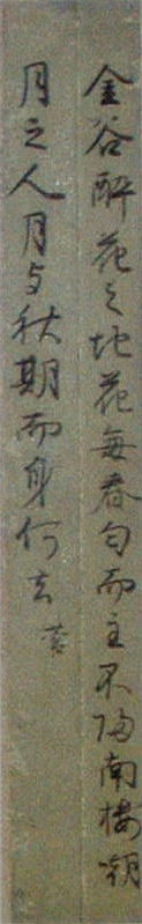 金谷酔花之地花毎春匂而主不帰南楼嘲
月之人月与秋期而身何去 菅